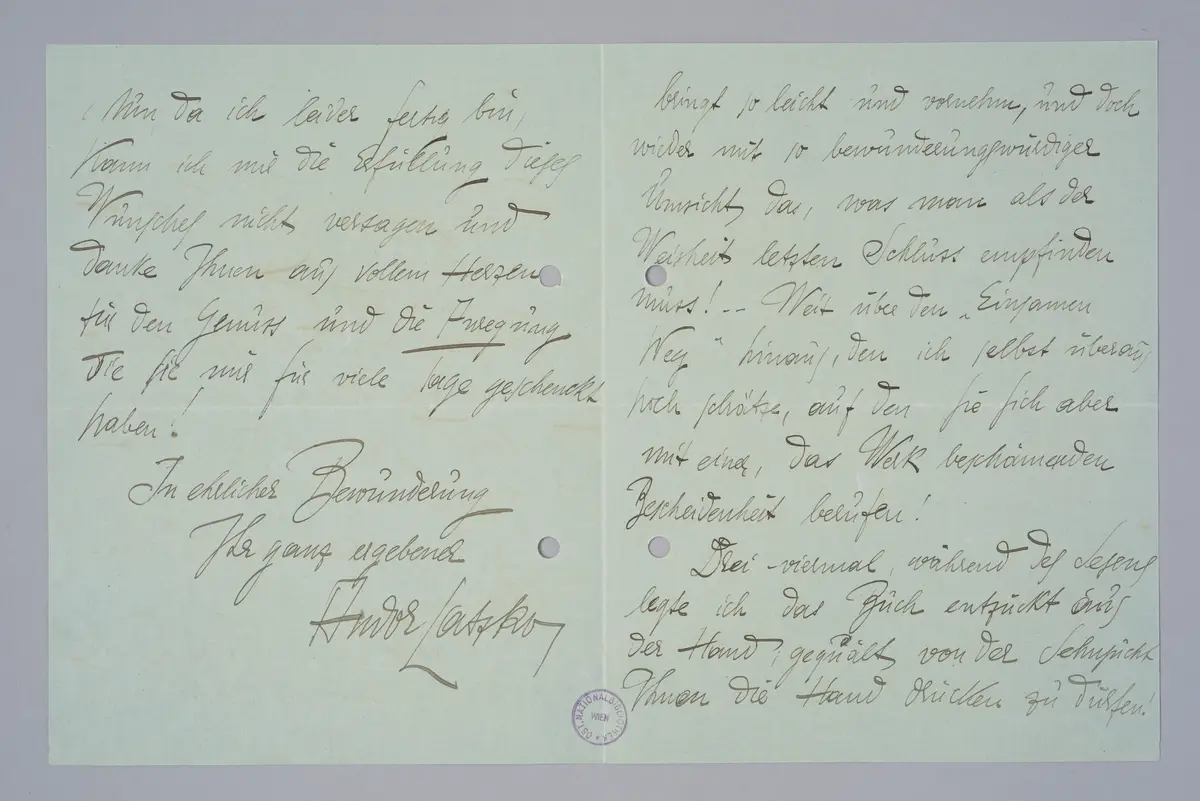 Nun da ich leider fertig bin,
kann ich mir die Erfüllung dieses
Wunsches nicht versagen und
danke Ihnen aus vollem Herzen
für den Genuss und die Anregung
die Sie mir für viele Tage geschenckt
haben!
In ehrlicher Bewunderung
Ihr ganz ergebener
Andor Latzko
bringt so leicht und vornehm, und doch
wieder mit so bewunderungswürdiger
Umsicht, das, was man als der
Weisheit letzten Schluss empfinden
muss! -- Weit über den „Einsamen
Weg" hinaus, den ich selbst überaus
hoch schätze, auf den Sie sich aber
mit einer, das Werk beschämenden
Bescheidenheit berufen!
Drei-viermal, während des Lesens
legte ich das Buch entzückt aus
der Hand, gequält von der Sehnsucht
Ihnen die Hand drücken zu dürfen!
ÖST. NATIONALBIBLIOTHEK
WIEN